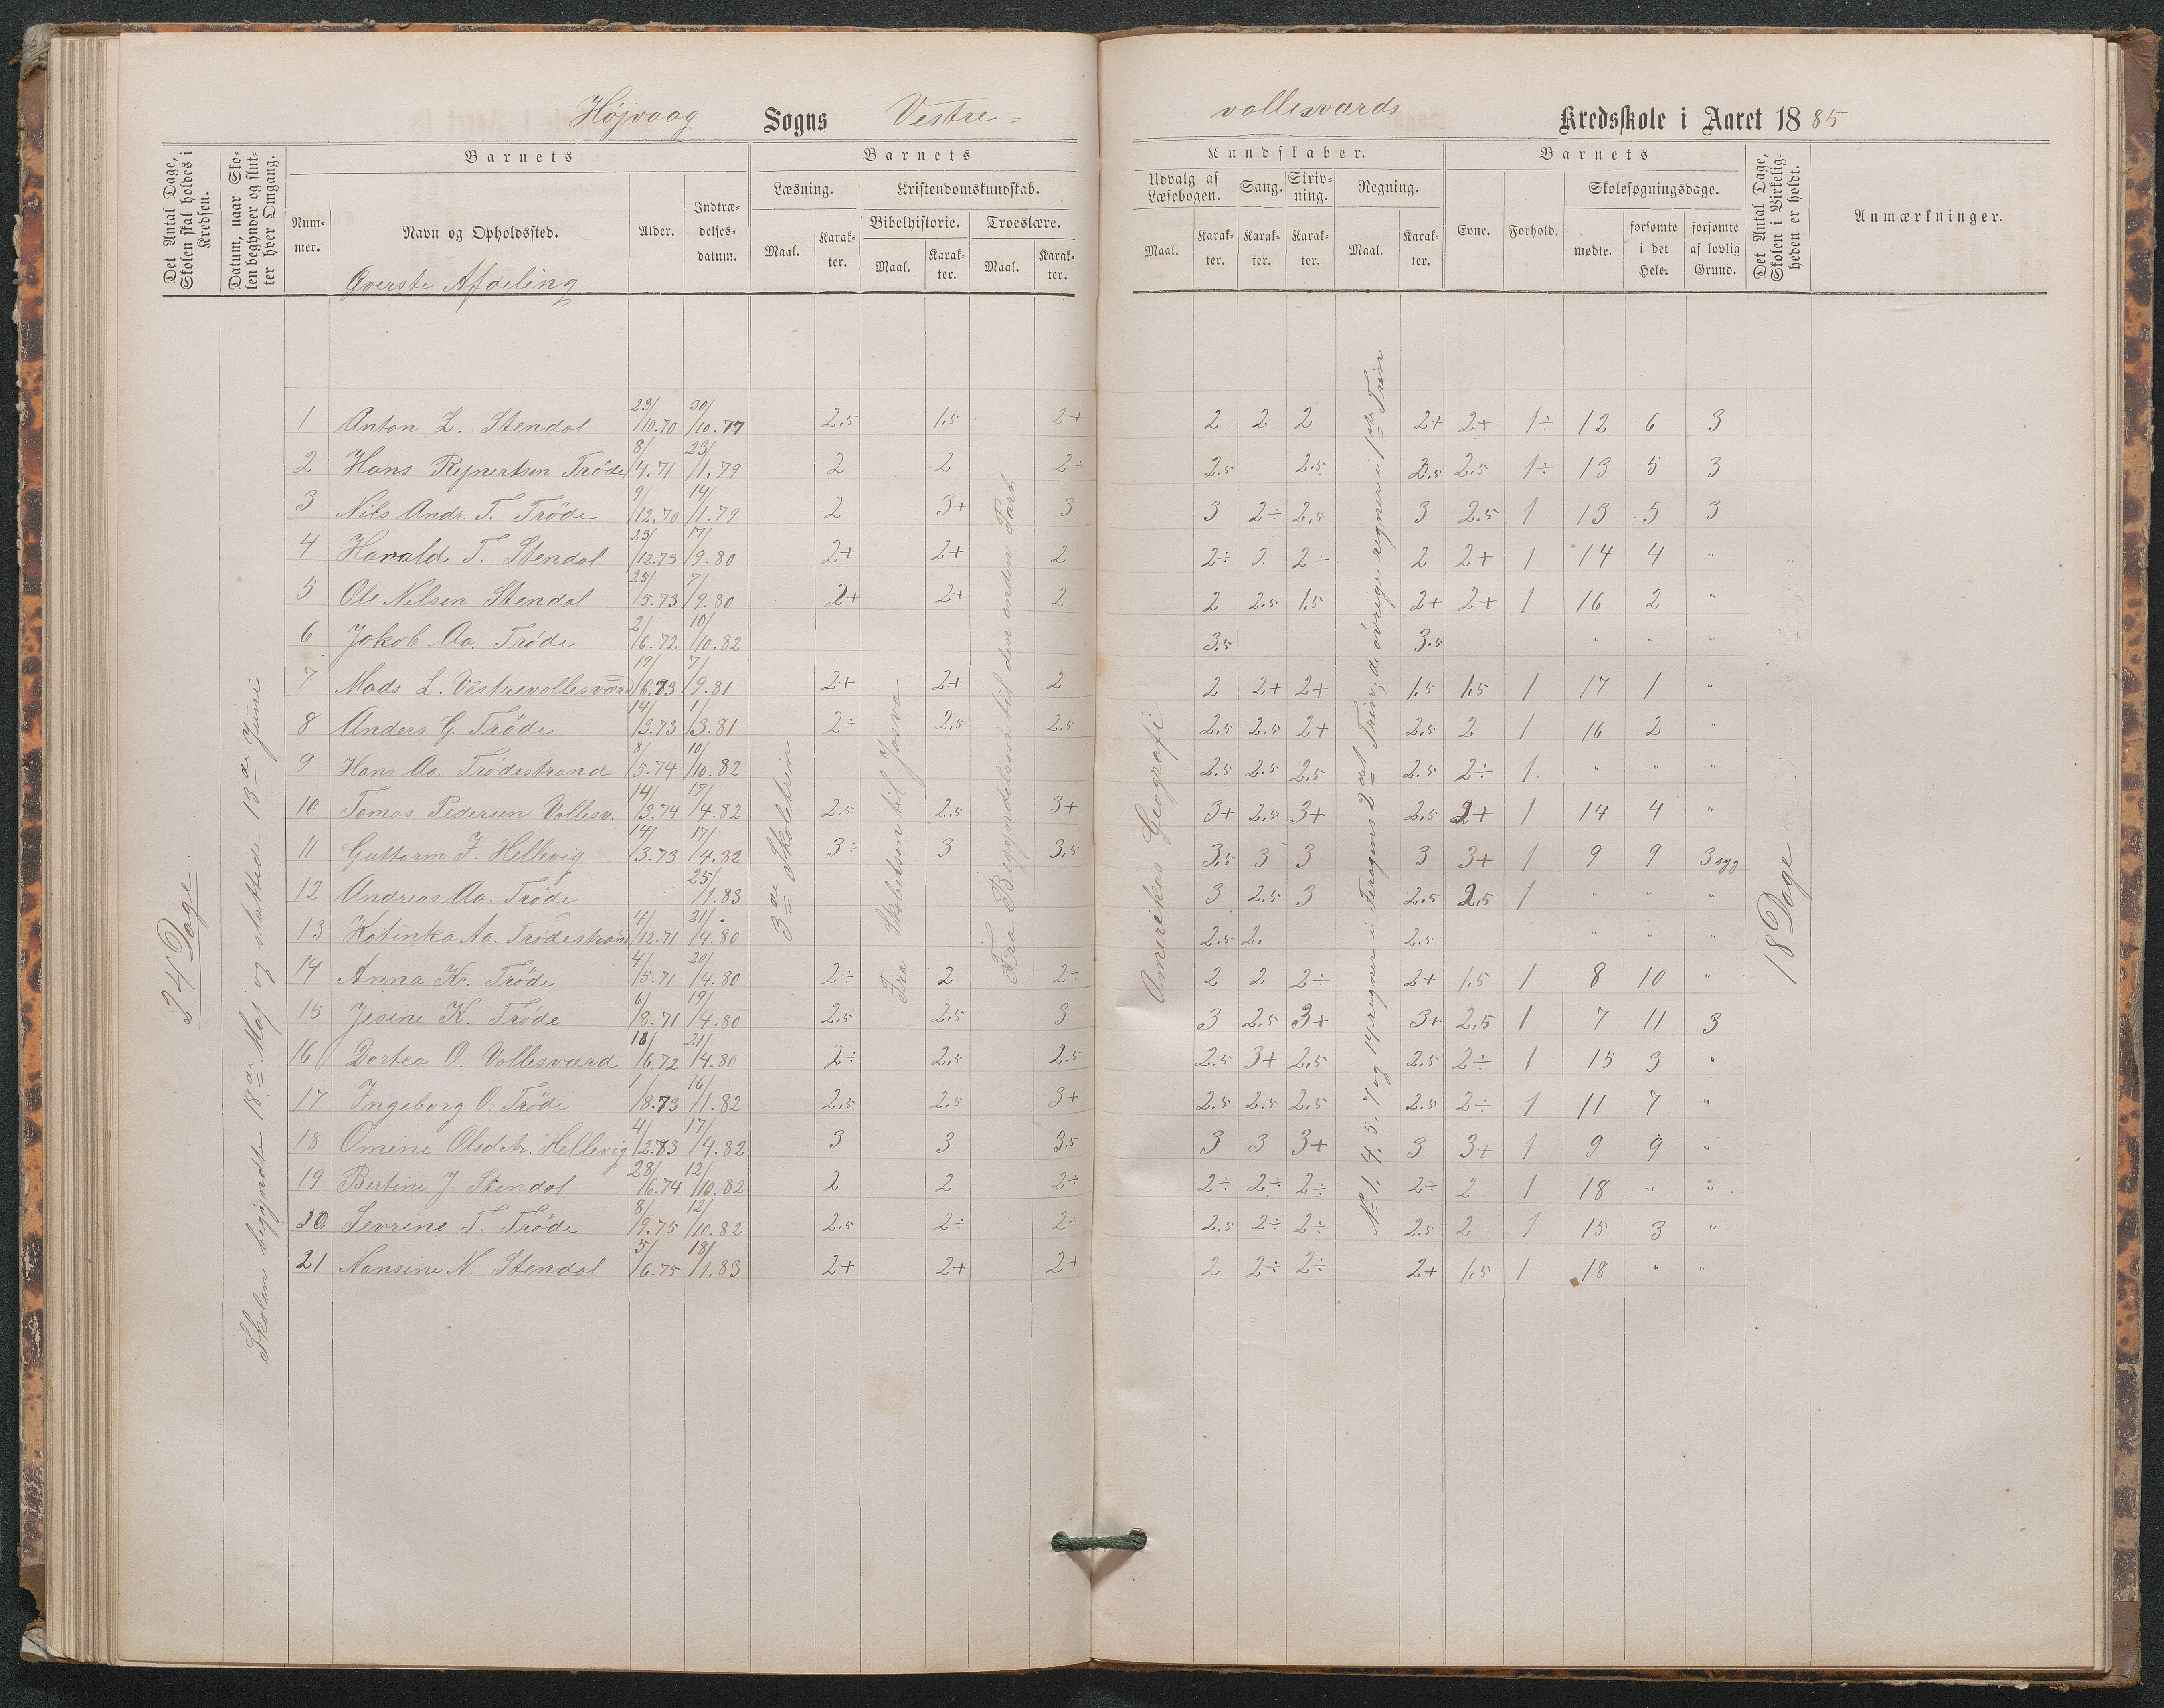 Højvaag Sogns Vestre= vollesværds Kredsskole i Aaret 1885
Det Antal Dage, Skolen skal holdes i Kredsen.
Datum, naar Skolen begynder og slutter hver Omgang.
Barnets
Nummer.
Navn og Opholdssted.
Alder.
Indtrædelsesdatum.
Øverste Afdeling
Barnets
Læsning.
Kristendomskundskab.
Bibelhistorie. Troeslære.
Maal. Karakter. Maal. Karakter. Maal. Karakter.
Kundskaber.
Udvalg af Læsebogen. Sang. Skrivning. Regning.
Maal. Karakter. Karakter. Karakter. Maal. Karakter.
Barnets
Evne. Forhold. Skolesøgningsdage.
mødte. forsømte i det Hele. forsømte af lovlig Grund.
Det Antal Dage, Skolen i Virkeligheden er holdt.
Anmærkninger.
24 Dage
Skolen begyndte 18de Maj og sluttede 13de Juni
3de Skoletrin
Fra Skabelsen til Josva
Fra Begyndelsen til den anden Part
Amerikas Geografi
No 1, 4, 5, 7 og 14 regner i Foragens 2det Trin, de øvrige regner i 1ste Trin
18 Dage
1 Anton L. Stendal 23/10.70 30/10.77 2,5 1,5 2+ 2 2 2 2+ 2+ 1÷ 12 6 3
2 Hans Rejnertsen Trøde 8/4.71 23/1.79 2 2 2÷ 2,5 2,5 2,5 2,5 1÷ 13 5 3
3 Nils Andr. T. Trøde 9/12.70 14/1.79 2 3+ 3 3 2÷ 2,5 3 2,5 1 13 5 3
4 Harald T. Stendal 23/12.73 17/9.80 2+ 2+ 2 2÷ 2 2÷ 2 2+ 1 14 4 "
5 Ole Nilsen Stendal 25/5.73 7/9.80 2+ 2+ 2 2 2,5 1,5 2+ 2+ 1 16 2 "
6 Jakob Aa. Trøde 2/6.72 10/10.82 3,5 3,5 " " "
7 Mads L. Vestrevollesværd 19/6.73 7/9.81 2+ 2+ 2 2 2+ 2+ 1,5 1,5 1 17 1 "
8 Anders G. Trøde 14/3.73 1/3.81 2÷ 2,5 2,5 2,5 2,5 2+ 2,5 2 1 16 2 "
9 Hans Aa. Trødestrand 8/5.74 10/10.82 2,5 2,5 2,5 2,5 2÷ 1 " " "
10 Tomas Pedersen Vollesv. 14/3.74 17/4.82 2,5 2,5 3+ 3+ 2,5 3+ 2,5 2+ 1 14 4 "
11 Guttorm J. Hellevig 14/3.73 17/4.82 3÷ 3 3,5 3,5 3 3 3 3+ 1 9 9 3 syg
12 Andreas Aa. Trøde 25/1.83 3 2,5 3 2,5 2,5 1 " " "
13 Katinka Aa. Trødestrand 4/12.71 21/4.80 2,5 2. 2,5 " " "
14 Anna Kr. Trøde 4/5.71 20/4.80 2÷ 2 2÷ 2 2 2÷ 2+ 1,5 1 8 10 "
15 Jesine K. Trøde 6/8.71 19/4.80 2,5 2,5 3 3 2,5 3+ 3+ 2,5 1 7 11 3
16 Dortea O. Vollesværd 18/6.72 21/4.80 2÷ 2,5 2,5 2,5 3+ 2,5 2,5 2÷ 1 15 3 "
17 Ingeborg O. Trøde 1/8.73 16/1.82 2,5 2,5 3+ 2,5 2,5 2,5 2,5 2÷ 1 11 7 "
18 Omine Olsdatr. Hellevig 4/12.73 17/4.82 3 3 3,5 3 3 3+ 3 3+ 1 9 9 "
19 Bertine J. Stendal 28/6.74 12/10.82 2 2 2÷ 2÷ 2÷ 2÷ 2÷ 2 1 18 " "
20 Sevrine T. Trøde 8/9.75 12/10.82 2,5 2÷ 2÷ 2,5 2÷ 2÷ 2,5 2 1 15 3 "
21 Nansine N. Stendal 5/6.75 18/1.83 2+ 2+ 2+ 2 2÷ 2÷ 2+ 1,5 1 18 " "